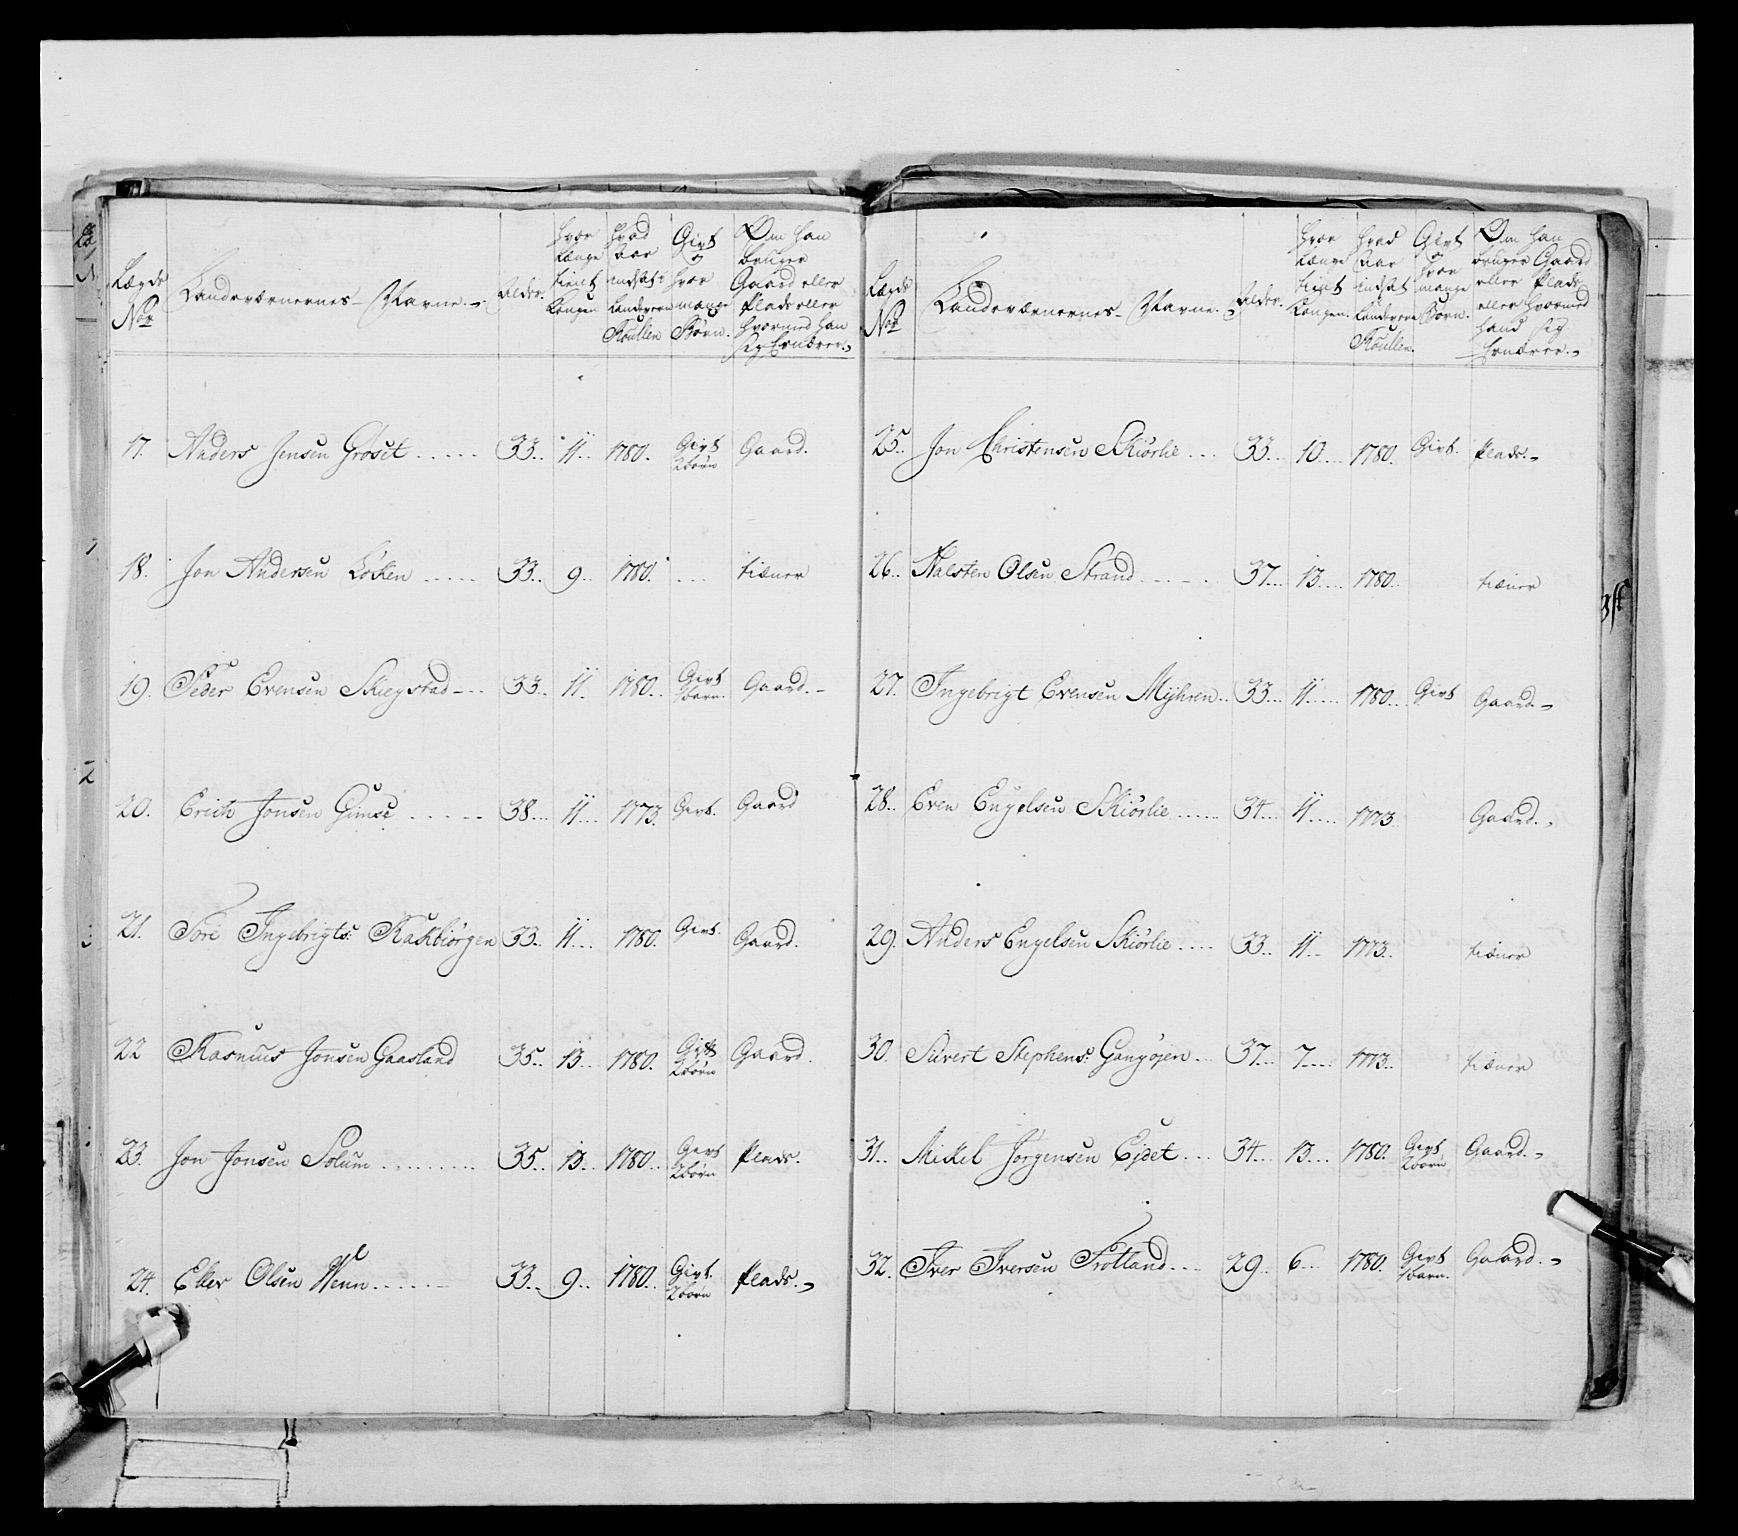 Lægds No
Landeværnernes Navne
Alder.
Hvor Længe tient Kongen
Hvad Aar indsat i Landevern Roullen
Givt og hvor mange Børn.
Om han bruger Gaard eller Plads eller hvormed han sig Ernærer.
17. Anders Jensen Grøset 33 11 1780. Givt 2 børn Gaard.
18. Jon Andersen Løken 33 9 1780. tiæner
19. Peder Evensen Skiegstad 33 11 1780 Givt 1 barn Gaard.
20. Erich Jonsen Gimse 38 11 1773 Givt. Gaard
21. Tore Ingebrigts: Kakbiørgen 33 11 1780. Givt. Gaard.
22 Rasmus Jonsen Gaasland 35 13 1780. Givt 2 børn Gaard.
23. Jon Jonsen Solum 35 13 1780 Givt 2 børn Plads.
24. Eller Olsen Wenn 33 9 1780 Givt. 2 børn Plads.
Lægds No
Landeværnernes Navne.
Alder.
Hvor Længe tient Kongen.
Hvad Aar indsat Landevern Roullen.
Givt og hvor mange Børn.
Om han bruger Gaard eller Plads eller hvormed hand sig Ernærer.
25. Jon Christensen Skiørlie 33 10 1780. Givt. Plads.
26. Halsten Olsen Strand 37 13 1780. tiæner
27. Ingebrigt Evensen Mÿhren 33 11 1780 Givt Gaard.
28. Even Engelsen Skiørlie 34 11 1773 Gaard.
29. Anders Engelsen Skiørlie 33 11 1773 tiæner
30. Sivert Stephens: Gangøjen 37 7 1773 tiæner
31. Mikel Jørgensen Ejdet 34 13 1780. Givt 2 børn Gaard.
32. Iver Iversen Frotland 29 6 1780. Givt 1 barn. Gaard.